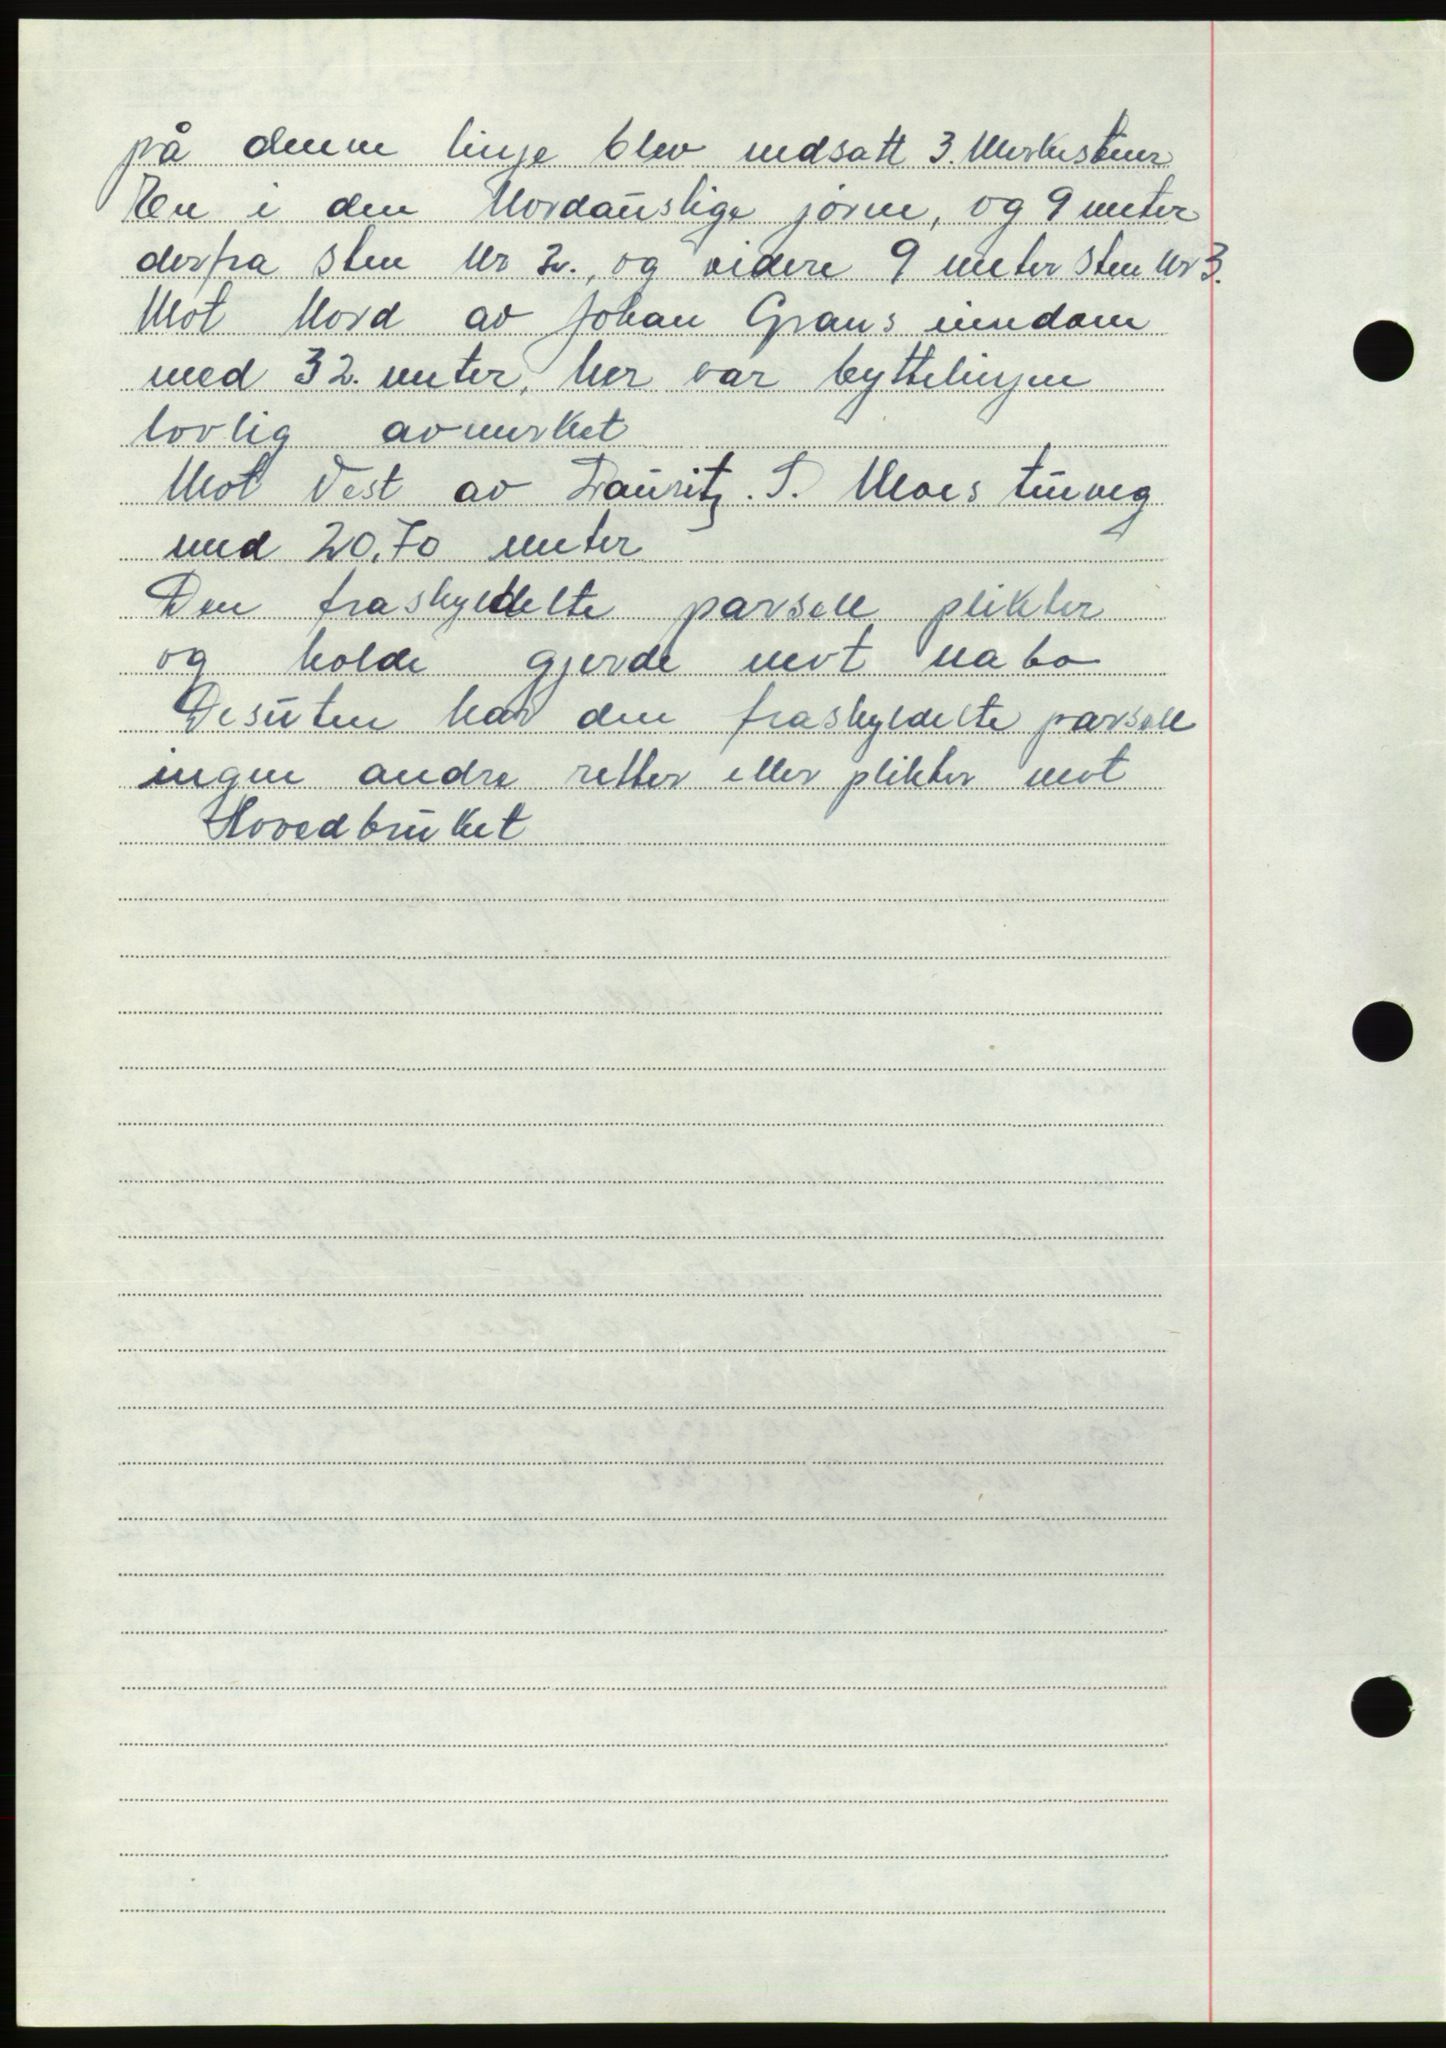 på denne linje blev nedsatt 3. Merkestener
En i den Nordaustlige jørne, og 9 meter
derfra sten Nr 2., og videre 9 meter sten Nr 3.
Mot Nord av Johan Grans eiendom
med 32. meter, her var byttelinjen
lovlig avmerket
Mot Vest av Lauritz. S. Moes tunveg
med 20,70 meter
Den fraskyldelte parsell plikter
og holde gjerde mot nabo
Desuten har den fraskyldelte parsell
ingen andre retter eller plikter mot
Hovedbruket